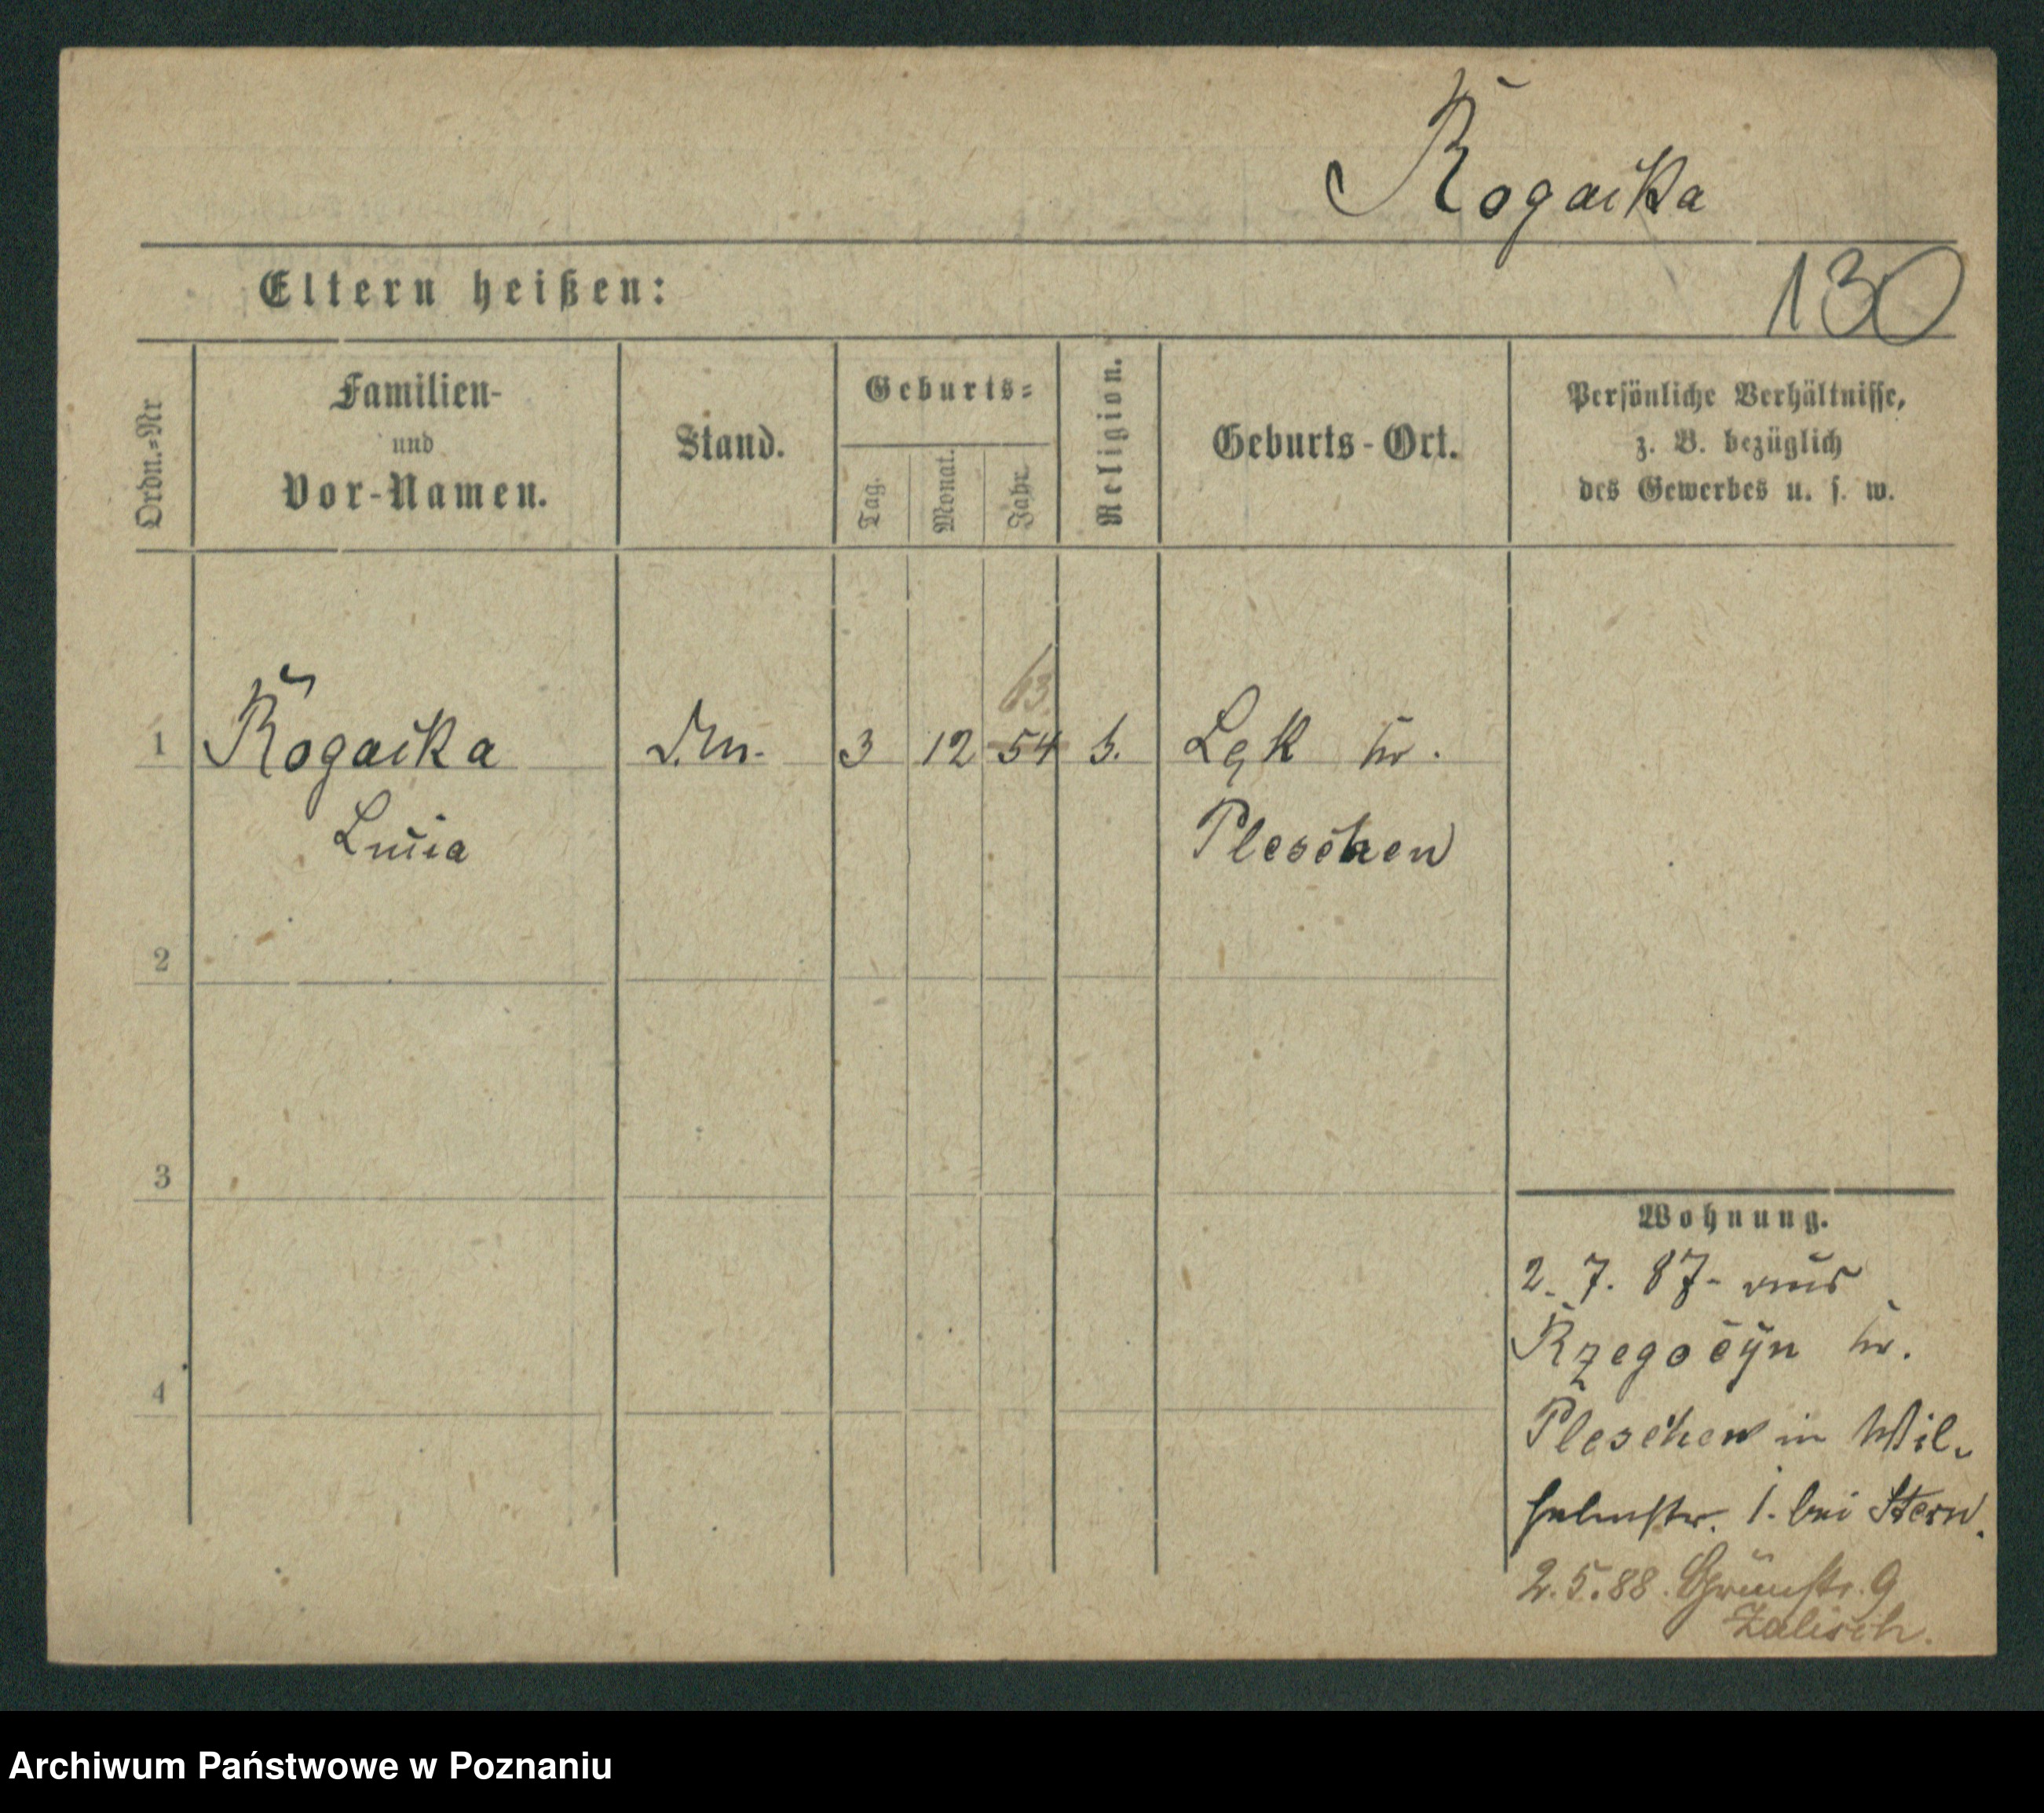 Rogacka
130
Eltern heißen:
Ordn.-Nr
Familien-
und
Vor-Namen.
Stand.
Geburts-
Tag.
Monat.
Jahr.
Religion.
Geburts-Ort.
Persönliche Verhältnisse,
z. B. bezüglich
des Gewerbes u. s. w.
63
1 Rogacka 3 12 54 Ląk Kr.
Lucia Pleschen
2
3
4
Wohnung.
2. 7. 87. aus
Rzegocyn Kr.
Pleschen in Wil-
helmstr. 1. bei Stern.
2.5.88. Grünstr. 9
Zalisch.
Archiwum Państwowe w Poznaniu